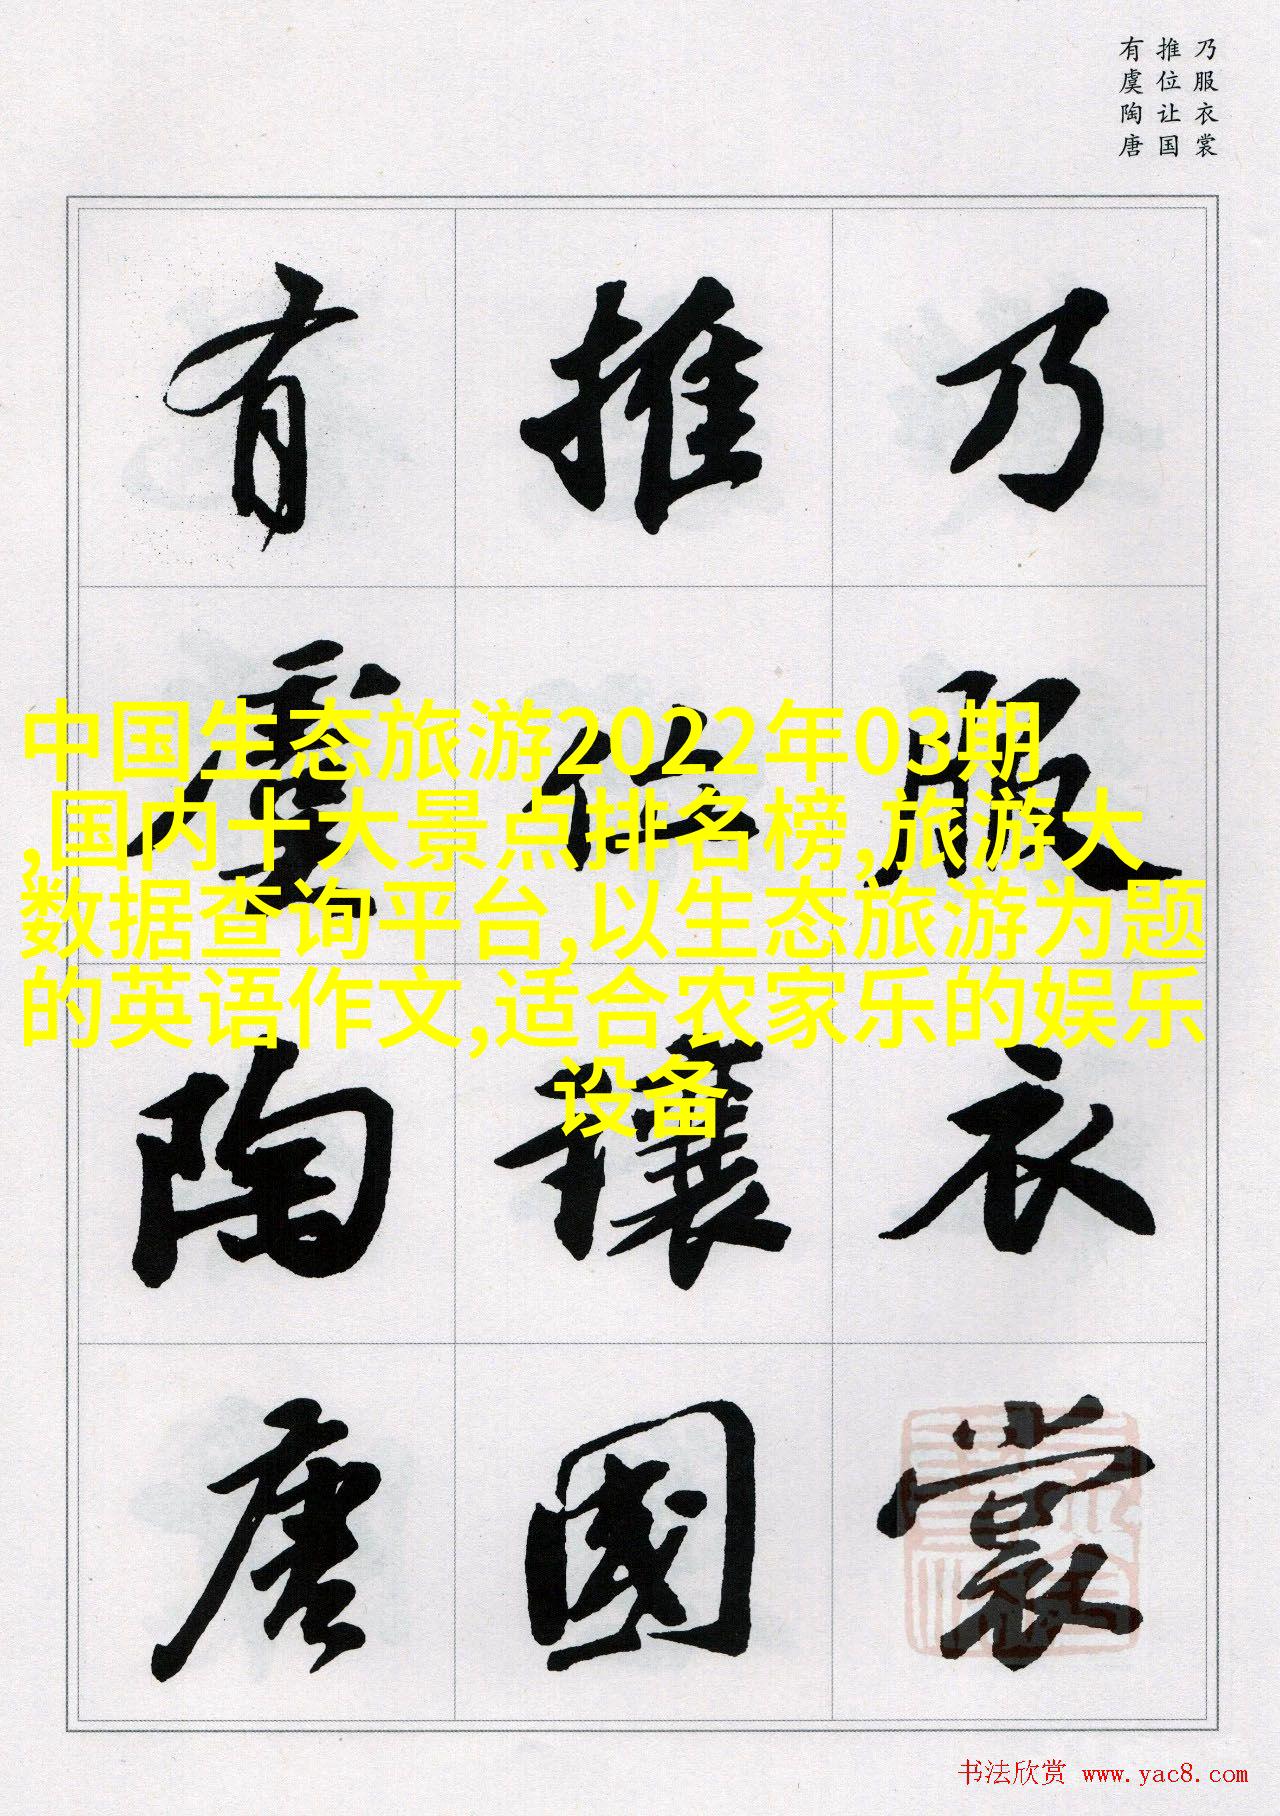 乃服衣裳
推位让国
有虞陶唐
乃服衣裳
推位讓國
有虞陶唐
中国生态旅游2022年03期
,国内十大景点排名榜,旅游大
数据查询平台,以生态旅游为题
的英语作文,适合农家乐的娱乐
设备
书法欣赏 www.yac8.com